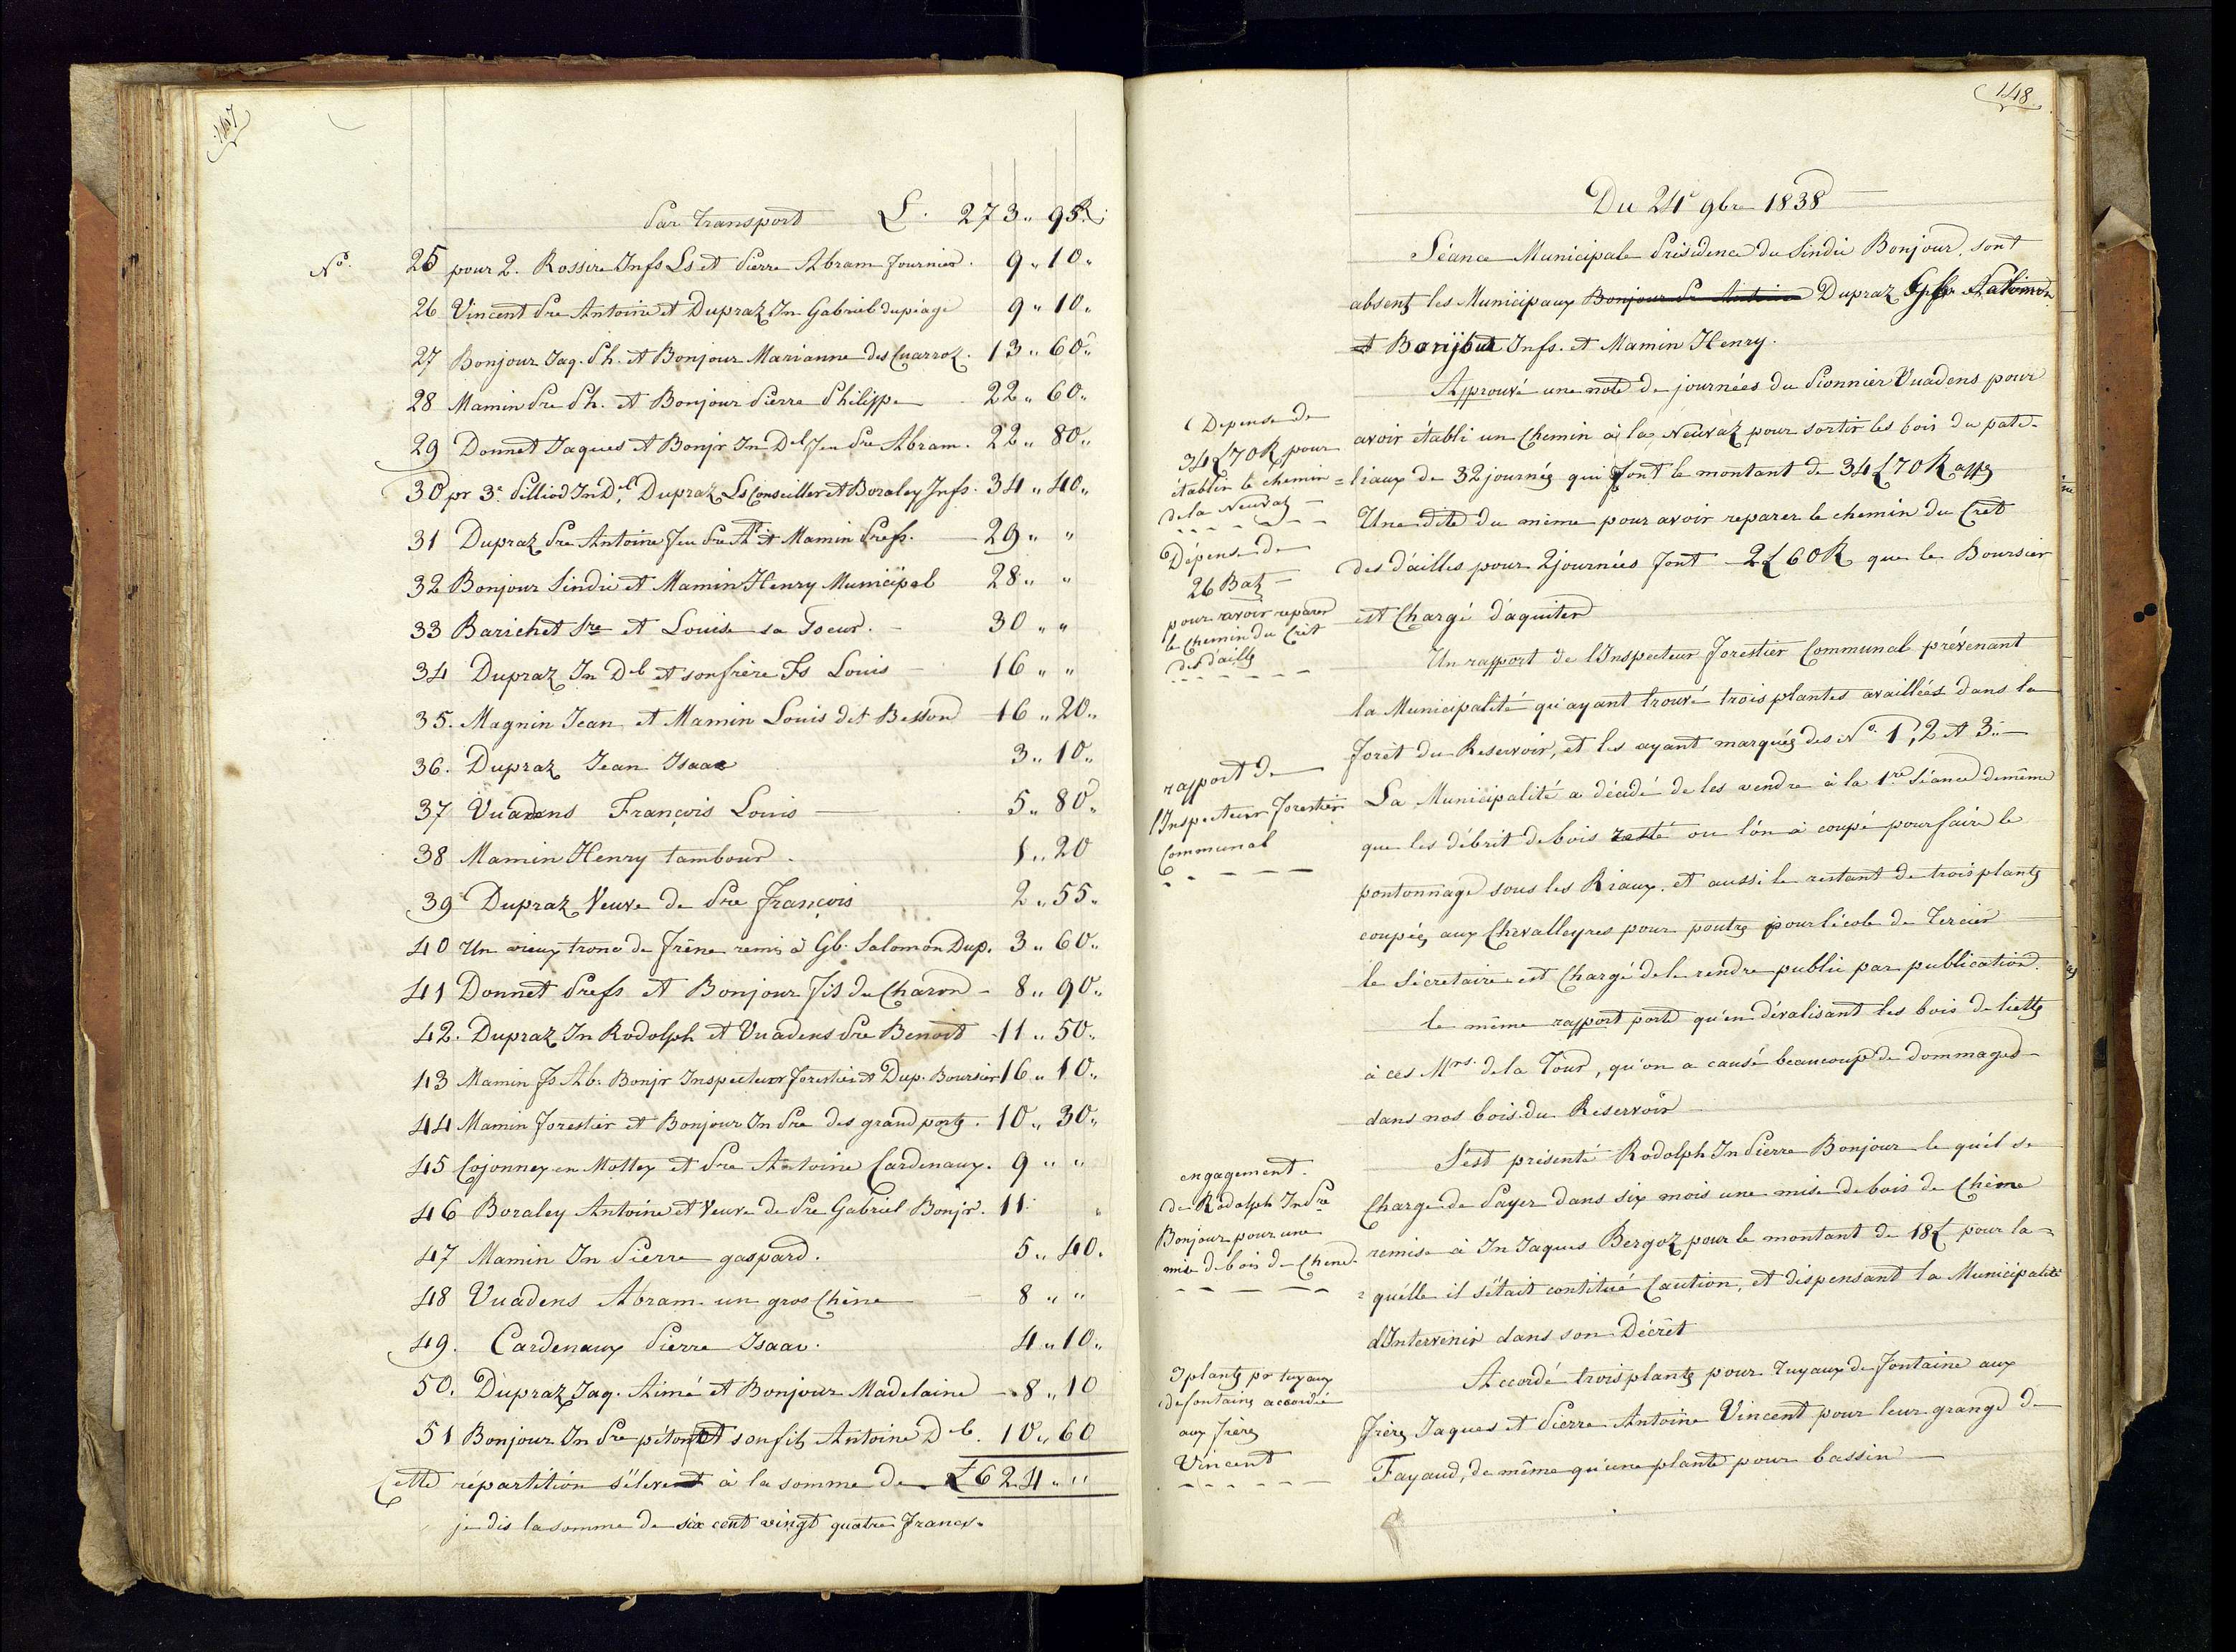 147
Par transport L. 273 " 95 R.
No. 25 pour 2. Rossire Jnfs Ls et Pierre Abram fournier. 9 " 10 "
26 Vincent Pre Antoine et Dupraz Jn Gabriel dupéage 9 " 10 "
27 Bonjour Jaq. Ph. et Bonjour Marianne des Cuarroz. 13 " 60 "
28 Mamin Pre Ph. et Bonjour Pierre Philippe 22 " 60 "
29 Donnet Jaques et Bonjr Jn Del feu Pre Abram. 22 " 80 "
30 pr 3. Pilliod Jn Del, Dupraz Ls Conseiller et Boraley Jnfs. 34 " 40 "
31 Dupraz Pre Antoine feu Pre Ane et Mamin Prefs. 29 " "
32 Bonjour Sindic et Mamin Henry Municipal 28 " "
33 Barichet Pre et Louise sa Soeur. 30 " "
34 Dupraz Jn Del et son frère Fs Louis 16 " "
35. Magnin Jean et Mamin Louis dit Besson 16 " 20 "
36. Dupraz Jean Isaac 3 " 10 "
37 Vuadens François Louis 5 " 80 "
38 Mamin Henry tambour. 1 " 20
39 Dupraz Veuve de Pre François 2 " 55 "
40 Un vieux tronc de frêne remis à Gb. Salomon Dup. 3 " 60 "
41 Donnet Prefs et Bonjour fils du Charon 8 " 90 "
42. Dupraz Jn Rodolph et Vuadens Pre Benoit 11 " 50 "
43 Mamin Fs Ab. Bonjr Inspecteur forestier et Dup. Boursier 16 " 10 "
44 Mamin forestier et Bonjour Jn Pre des grand ports. 10 " 30 "
45 Cojonnex en Mottex et Pre Antoine Cardenaux. 9 " "
46 Boraley Antoine et Veuve de Pre Gabriel Bonjr. 11 "
47 Mamin Jn Pierre gaspard. 5 " 40 "
48 Vuadens Abram. un gros Chêne 8 " "
49. Cardenaux Pierre Isaac. 4 " 10 "
50. Dupraz Jaq. Aimé et Bonjour Madelaine 8 " 10
51 Bonjour Jn Pre piton et son fils Antoine Del. 10 " 60
Cette répartition s'élevent à la somme de L 624 " "
je dis la somme de six cent vingt quatre francs.
148
Du 24e 9bre 1838
Séance Municipale Présidence du Sindic Bonjour, sont
absents les Municipaux Bonjour Pre Antoine Dupraz Salomon
et Jnfs. et Mamin Henry.
Approuvé une note de journées du Pionnier Vuadens pour
avoir établi un Chemin à la Neuvaz pour sortir les bois du pate-
=liaux de 32 journés qui font le montant de 34 L 70 R
Une dite du même pour avoir reparer le chemin du Crêt
des d'ailles pour 2 journées font 2 L 60 R que le Boursier
est Chargé d'aquiter
Un rapport de l'Inspecteur forestier Communal prévenant
la Municipalité qu'ayant trouvé trois plantes availlées dans la
forêt du Reservoir, et les ayant marqués des No. 1, 2 et 3.
La Municipalité a décidé de les vendre à la 1re Séance demême
que les débrit de bois resté ou l'on à coupé pour faire le
pontonnage sous les Riaux. et aussi le restant de trois plants
coupés aux Chevalleyres pour poutres pour l'école de Tercier
le Sécretaire est Chargé de le rendre public par publication.
le même rapport porte qu'en dévalisant les bois de liettes
à ces Mrs. de la Tour, qu'on a causé beaucoup de dommages
dans nos bois du Reservoir
S'est présenté Rodolph Jn Pierre Bonjour le quél se
Charge de Payer dans six mois une mise de bois de Chêne
remise à Jn Jaques Bergoz pour le montant de 18 L pour la
= quélle il s'était contitué Caution, et dispensant la Municipalité
d'Intervenir dans son Décret
Accordé trois plants pour Tuyaux de fontaine aux
frères Jaques et Pierre Antoine Vincent pour leur grange de
Fayaud, de même qu'une plante pour bassin
Depense de
34 L 70 R pour
établir le chemin
de la Neuvaz
Dépense de
26 Batz
pour avoir reparer
le Chemin du Crêt
des d'ailles
rapport de
l'Inspecteur forestier
Communal
engagement.
de Rodolph Jn Pre
Bonjour pour une
mise de bois de Chene.
3 plants pr tuyaux
de fontaine accordé
aux frères
Vincent